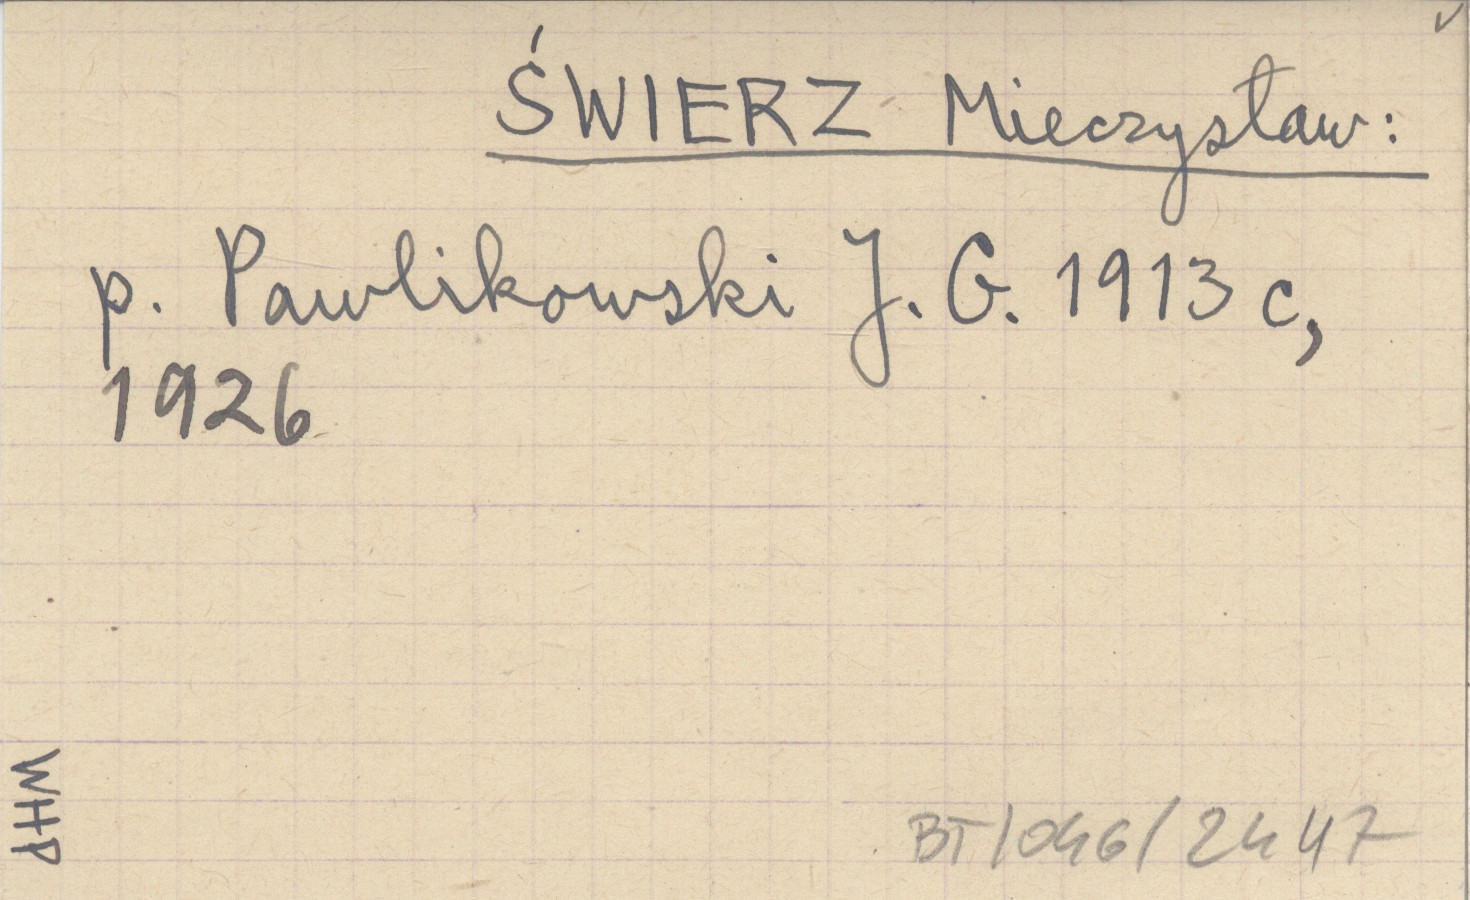 ŚWIERZ Mieczysław:
p. Pawlikowski J. G. 1913 c,
1926
WHP
BT/046/2447